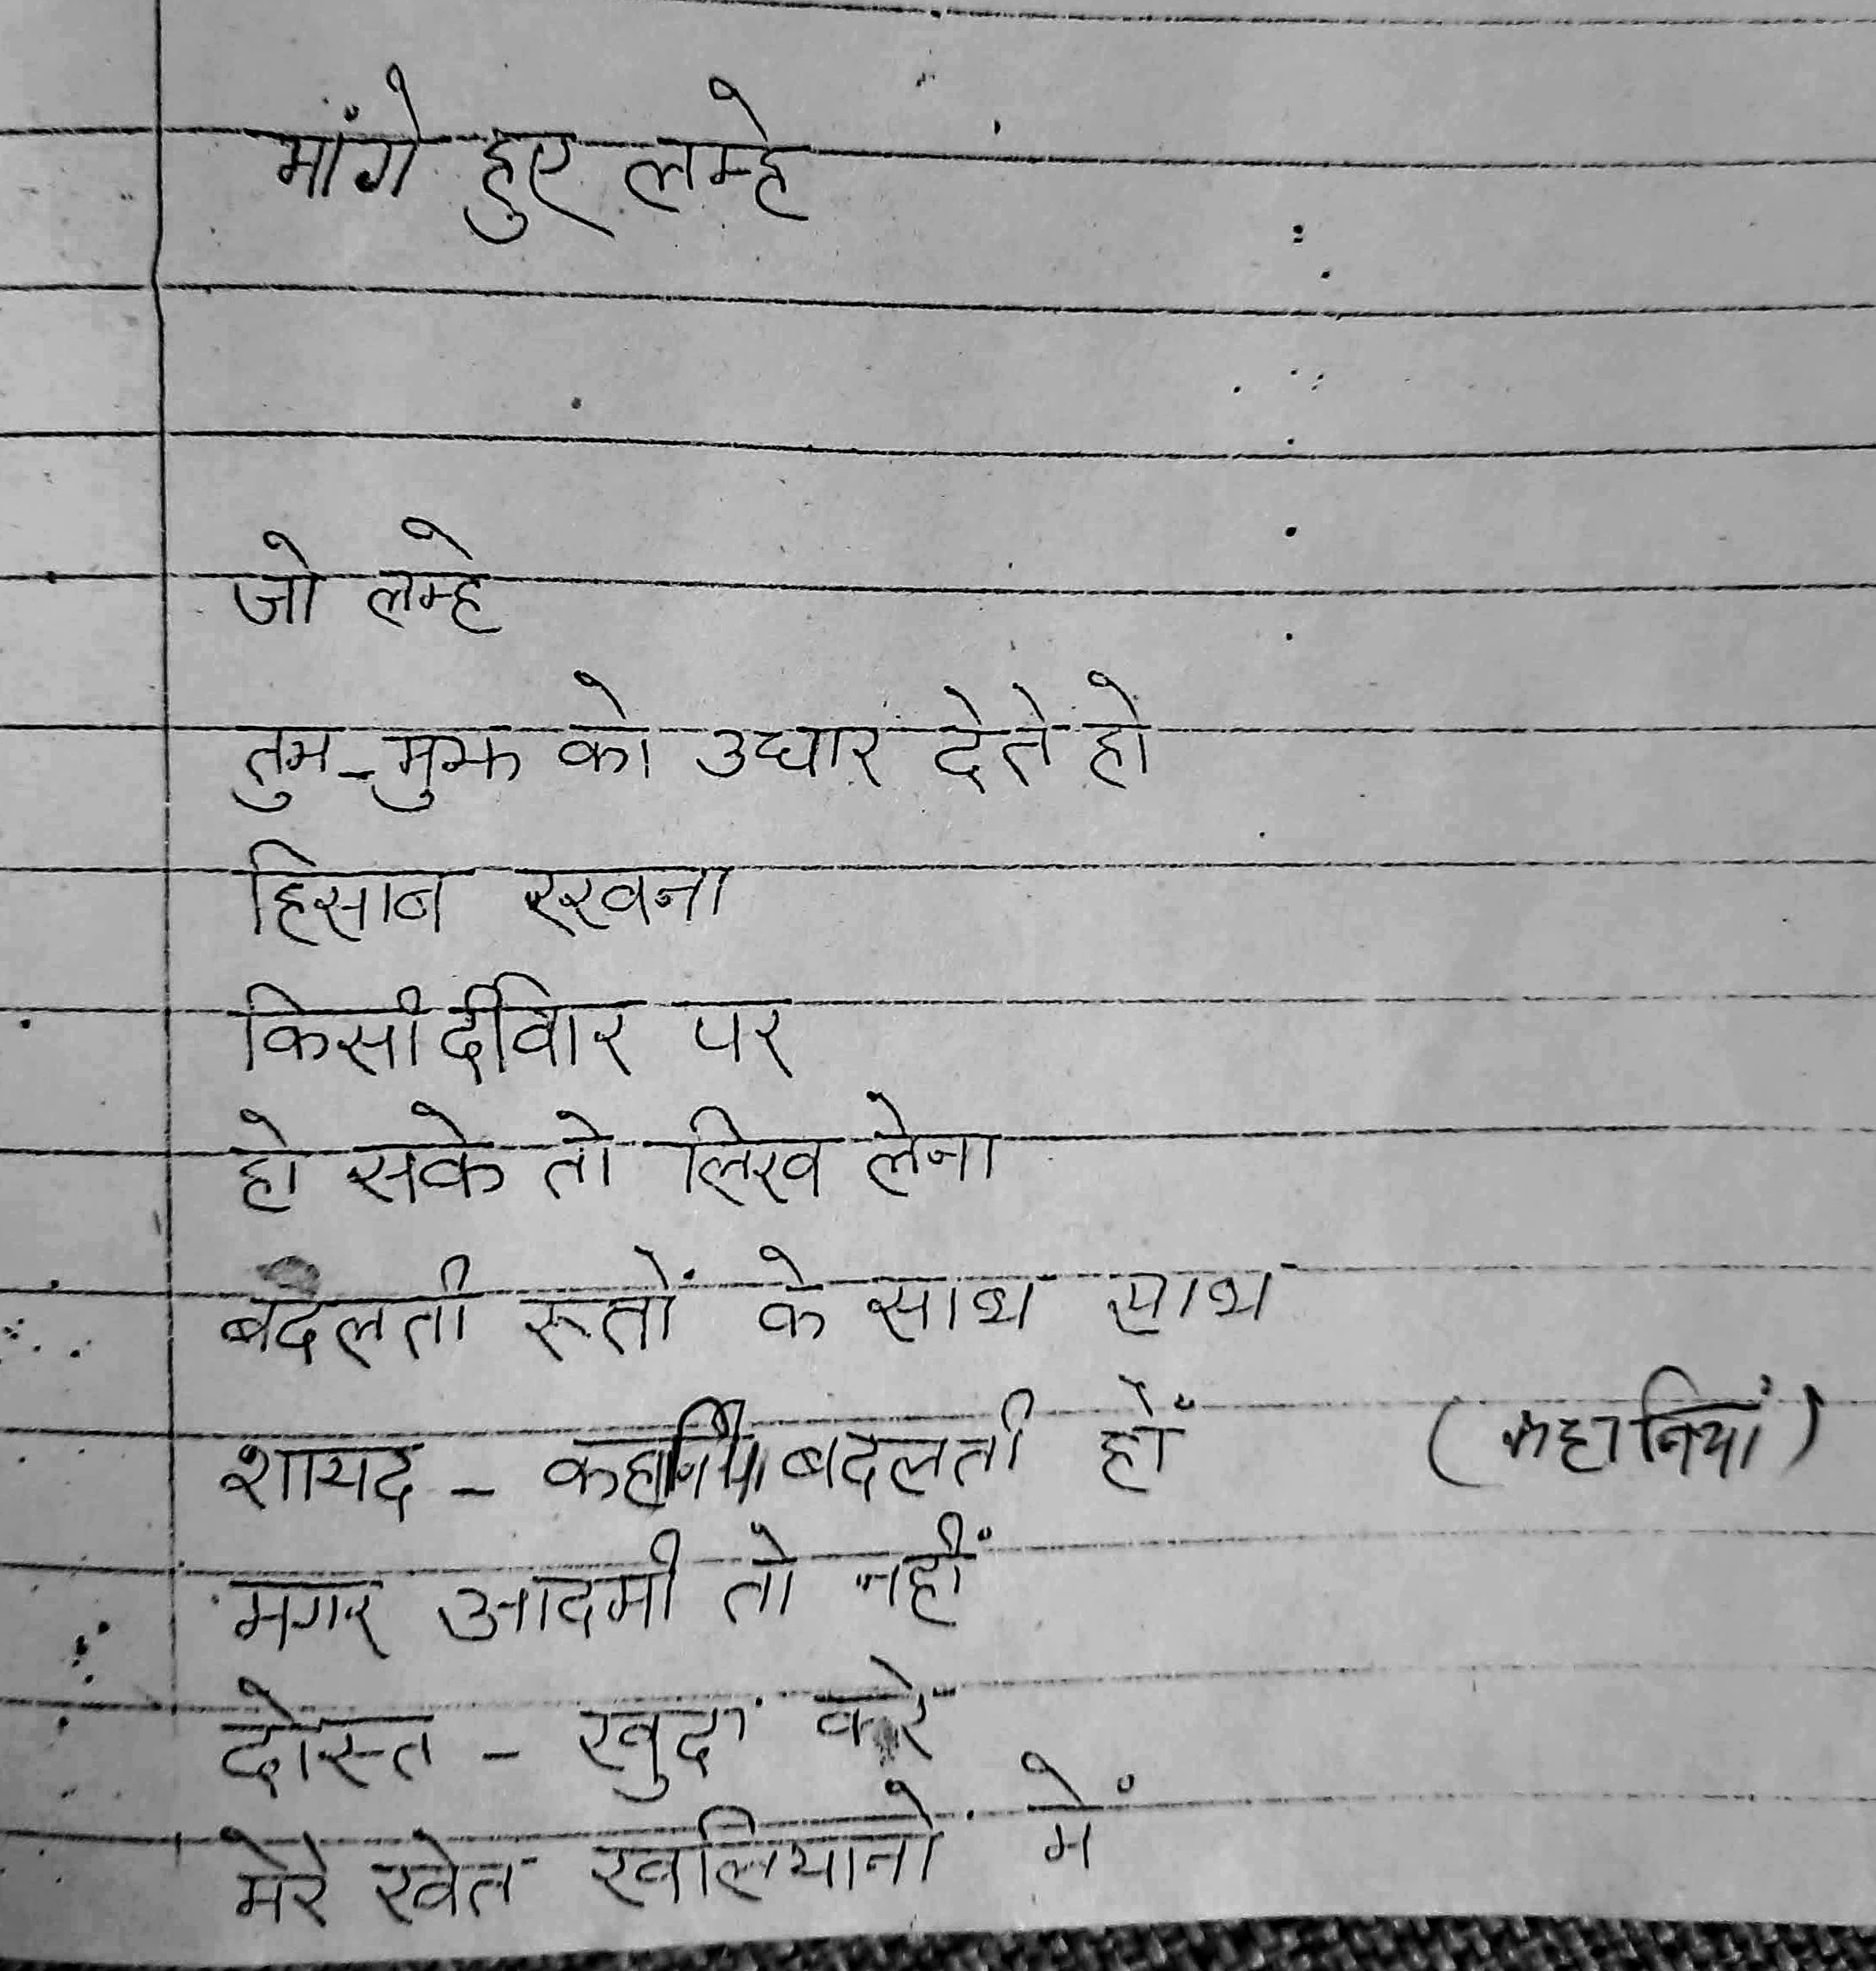 मांगे हुए लम्हे
जो लम्हे
तुम - मुझ को उधार देते हो
हिसाब रखना
किसी दीवार पर
हो सके तो लिख लेना
बदलती रूतों के साथ साथ
शायद - कहानियां बदलती हों (कहानियां)
मगर आदमी तो नहीं
दोस्त - खुदा करे
मेरे खेत खलियानों में